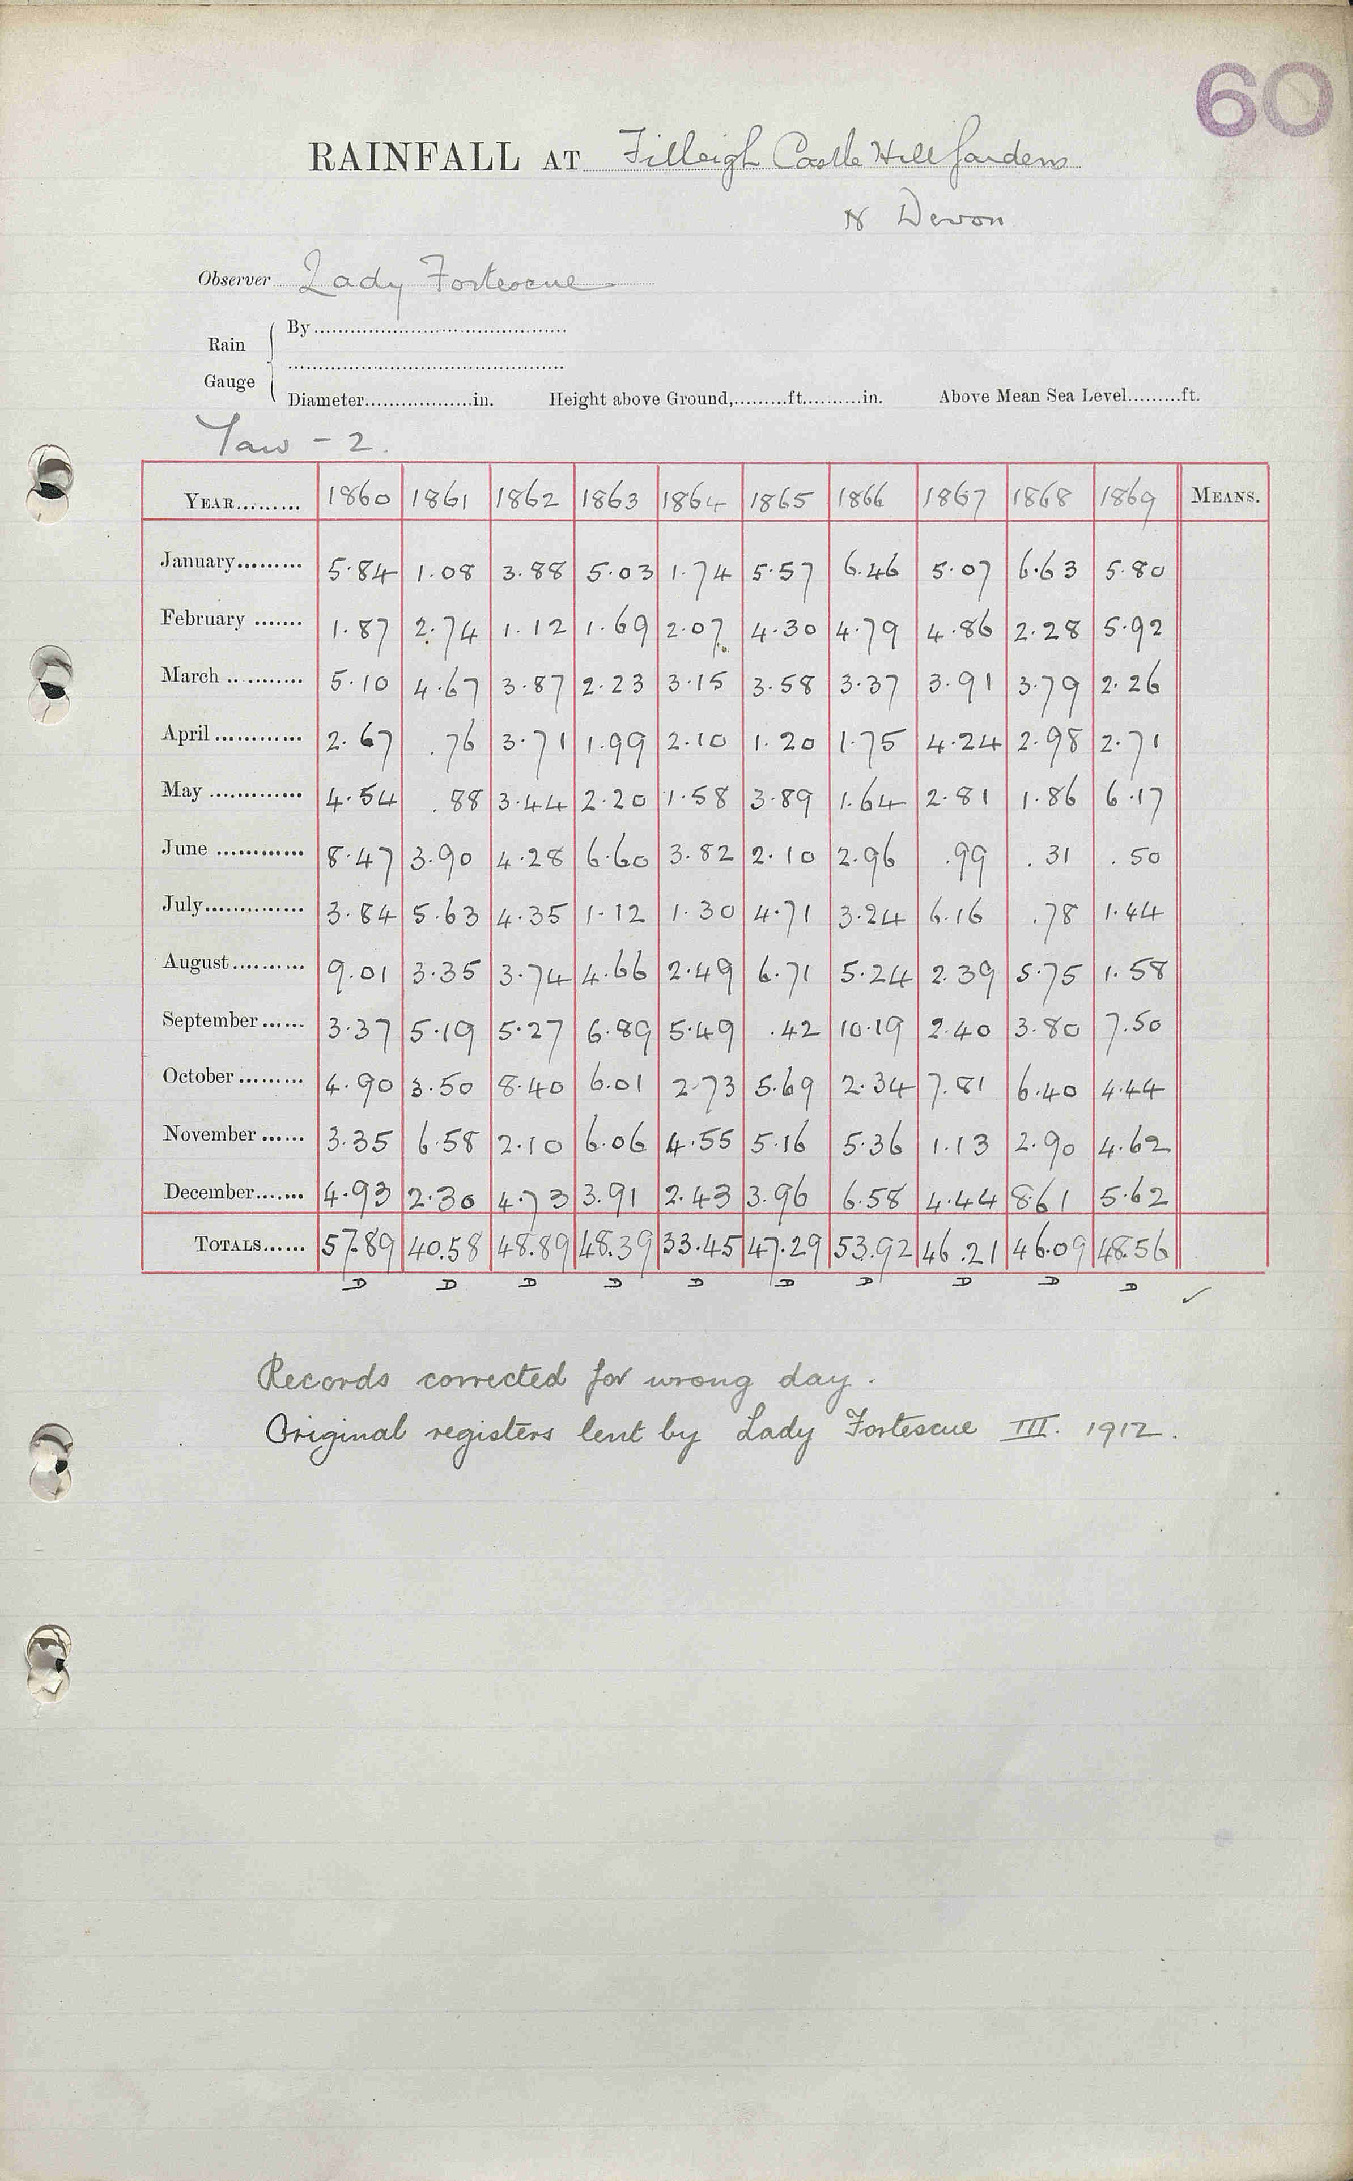 60
RAINFALL AT Filleigh Castle Hill Gardens
N Devon
Observer Lady Fortescue
Rain Gauge { By
Diameter..................in. Height above Ground,.........ft...........in. Above Mean Sea Level.........ft.
Taw - 2.
YEAR......... 1860 1861 1862 1863 1864 1865 1866 1867 1868 1869 MEANS.
January......... 5.84 1.08 3.88 5.03 1.74 5.57 6.46 5.07 6.63 5.80
February ....... 1.87 2.74 1.12 1.69 2.07 4.30 4.79 4.86 2.28 5.92
March ........... 5.10 4.67 3.87 2.23 3.15 3.58 3.37 3.91 3.79 2.26
April ............ 2.67 .76 3.71 1.99 2.10 1.20 1.75 4.24 2.98 2.71
May ............. 4.54 .88 3.44 2.20 1.58 3.89 1.64 2.81 1.86 6.17
June ............ 8.47 3.90 4.28 6.60 3.82 2.10 2.96 .99 .31 .50
July.............. 3.84 5.63 4.35 1.12 1.30 4.71 3.24 6.16 .78 1.44
August.......... 9.01 3.35 3.74 4.66 2.49 6.71 5.24 2.39 5.75 1.58
September ...... 3.37 5.19 5.27 6.89 5.49 .42 10.19 2.40 3.80 7.50
October ......... 4.90 3.50 8.40 6.01 2.73 5.69 2.34 7.81 6.40 4.44
November ...... 3.35 6.58 2.10 6.06 4.55 5.16 5.36 1.13 2.90 4.62
December....... 4.93 2.30 4.73 3.91 2.43 3.96 6.58 4.44 8.61 5.62
TOTALS...... 57.89 40.58 48.89 48.39 33.45 47.29 53.92 46.21 46.09 48.56
D D D D D D D D D D ✓
Records corrected for wrong day.
Original registers lent by Lady Fortescue III. 1912.